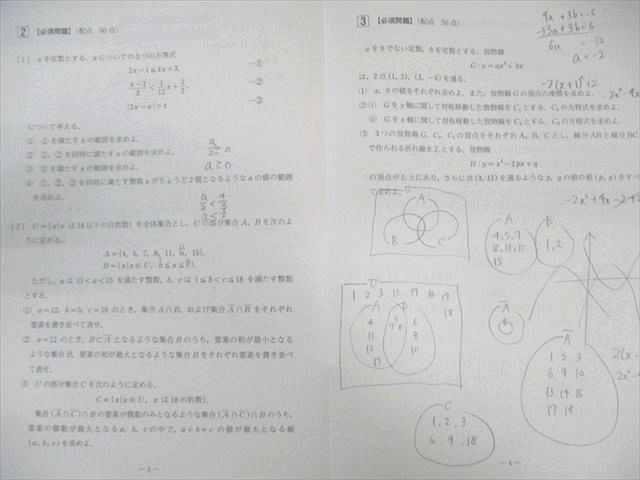 2 【必須問題】 (配点 60点)
[1] aを定数とする。xについての3つの不等式
2x-1≦4x+3, …①
…②
|2x-a|>4 …③
について考える。
① ①を満たすxの範囲を求めよ。
② ①, ②を同時に満たすxの範囲を求めよ。
③ ③を満たすxの範囲を求めよ。
④ ①, ②, ③を同時に満たす整数xがちょうど2個となるようなaの値の範囲
を求めよ。
a≧0
[2] U={x|xは18以下の自然数}を全体集合とし，Uの部分集合A, Bを次のよ
うに定める。
A={4, 5, 7, 8, 11, a, 15},
B={x|x∈U, b≦x≦c}.
ただし，aは11<a<15を満たす整数，b, cは1≦b<c≦18を満たす整数
とする。
① a=12, b=5, c=10のとき，集合A∩B，および集合A̅∩B̅をそれぞれ
要素を書き並べて表せ。
② a=12のとき，B⊂A̅となるような集合Bのうち，要素の和が最小となる
ような集合B，要素の和が最大となるような集合Bをそれぞれ要素を書き並べ
て表せ。
③ Uの部分集合Cを次のように定める。
C={x|x∈U, xは18の約数}.
集合(A̅∩C̅)∩Bの要素が偶数のみとなるような集合(A̅∩C̅)∩Bのうち，
要素の個数が最大となるa, b, cの中で，a+b+cの値が最大となる組
(a, b, c)を求めよ。
— 3 —
3 【必須問題】 (配点 50点)
9a+3b=-6
-)3a+3b=6
6a =-12
a=-2
aを0でない定数，bを定数とする。放物線
G:y=ax²+bx
は，2点(1, 2), (3, -6)を通る。
(1) a, bの値をそれぞれ求めよ。また，放物線Gの頂点の座標を求めよ。
(2)(i) Gをy軸に関して対称移動した放物線をC₁とする。C₁の方程式を求めよ。
(ii) Gをx軸に関して対称移動した放物線をC₂とする。C₂の方程式を求めよ。
(3) 3つの放物線G, C₁, C₂の頂点をそれぞれA, B, Cとし，線分ABと線分BC
で作られる折れ線をLとする。放物線
H:y=x²-2px+q
の頂点がL上にあり，さらに点(3, 11)を通るようなp, qの値の組(p, q)をすべ
て求めよ。
A
B C
U
1 2 3 13 14 16 17
18
A B
4 5 6
11 7 8 9
12 10
15
C
1, 2, 3
6, 9, 18
A
4, 5, 7
8, 11, 12
15
B
1, 2
A̅
A̅
1 2 3
6 9 10
13 14 16
17 18
— 4 —